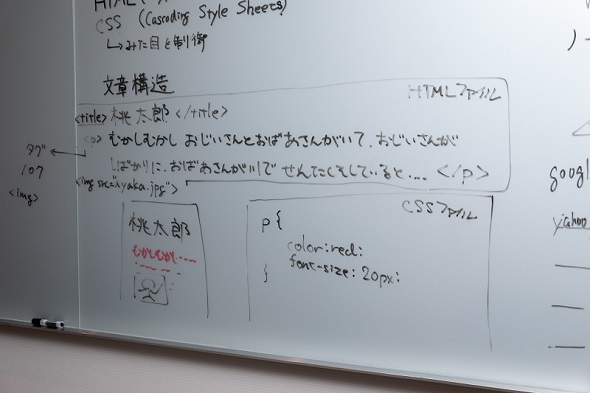 CSS (Cascading Style Sheets)
↳みた目を制御
文章構造
HTMLファイル
<title>桃太郎</title>
<p>むかしむかし おじいさんとおばあさんがいて、おじいさんが
しばかりに、おばあさんが川で せんたくをしていると.... </p>
タグ
<img>
CSSファイル
桃太郎
むかしむかし----
p{
color:red:
font-size: 20px:
}
yahoo